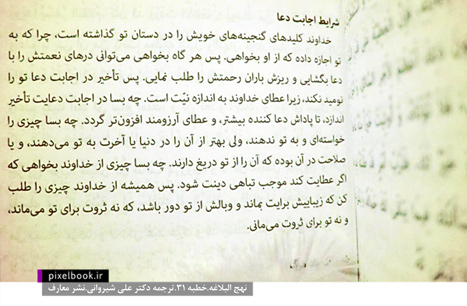 شرایط اجابت دعا
خداوند کلیدهای گنجینه‌های خویش را در دستان تو گذاشته است، چرا که به
تو اجازه داده که از او بخواهی. پس هر گاه بخواهی می‌توانی درهای نعمتش را با
دعا بگشایی و ریزش باران رحمتش را طلب نمایی. پس تأخیر در اجابت دعا تو را
نومید نکند، زیرا عطای خداوند به اندازه نیّت است. چه بسا در اجابت دعایت تأخیر
اندازد، تا پاداش دعا کننده بیشتر، و عطای آرزومند افزون‌تر گردد. چه بسا چیزی را
خواسته‌ای و به تو ندهند، ولی بهتر از آن را در دنیا یا آخرت به تو می‌دهند، و یا
صلاحت در آن بوده که آن را از تو دریغ دارند. چه بسا چیزی از خداوند بخواهی که
اگر عطایت کند موجب تباهی دینت شود. پس همیشه از خداوند چیزی را طلب
کن که زیباییش برایت بماند و وبالش از تو دور باشد، که نه ثروت برای تو می‌ماند،
و نه تو برای ثروت می‌مانی.
pixelbook.ir
نهج البلاغه.خطبه ۳۱.ترجمه دکتر علی شیروانی.نشر معارف